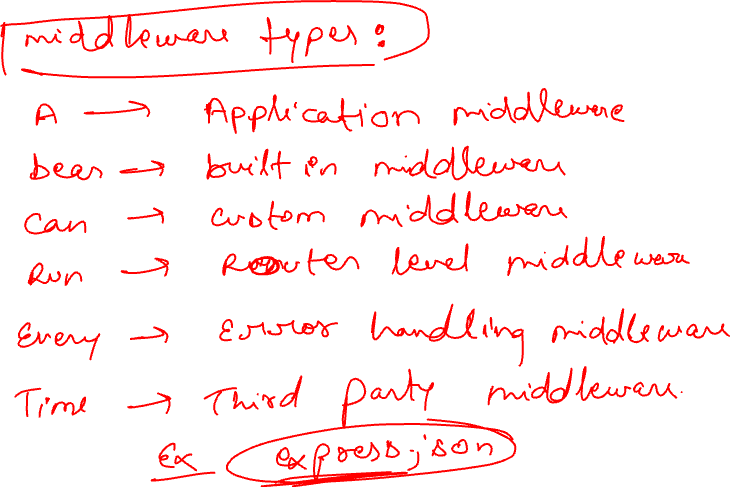 middleware types:
A → Application middleware
bear → built in middleware
can → custom middleware
Run → Router level middleware
Every → Error handling middleware
Time → Third party middleware.
Ex express.json